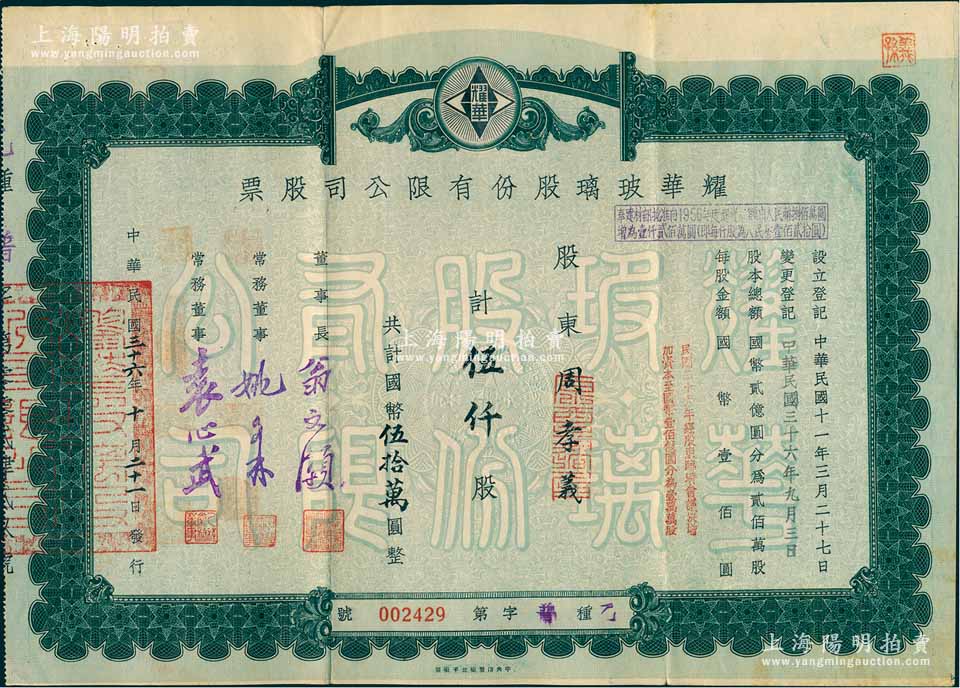 上海陽明拍賣
www.yangmingauction.com
耀華
耀華玻璃股份有限公司股票
設立登記 中華民國十一年三月二十七日
變更登記 中華民國三十六年九月三日
股本總額 國幣貳億圓分為貳佰萬股
每股金額 國幣壹佰圓
耀華玻璃股份有限公司
股東 周孝義
計 伍仟 股
共計國幣 伍拾萬 圓整
董事長 翁文灝
常務董事 姚
常務董事 袁心武
中華民國三十六年十月二十一日發行
乙種 字第 002429 號
上海陽明拍賣
www.yangmingauction.com
上海陽明拍賣
www.yangmingauction.com